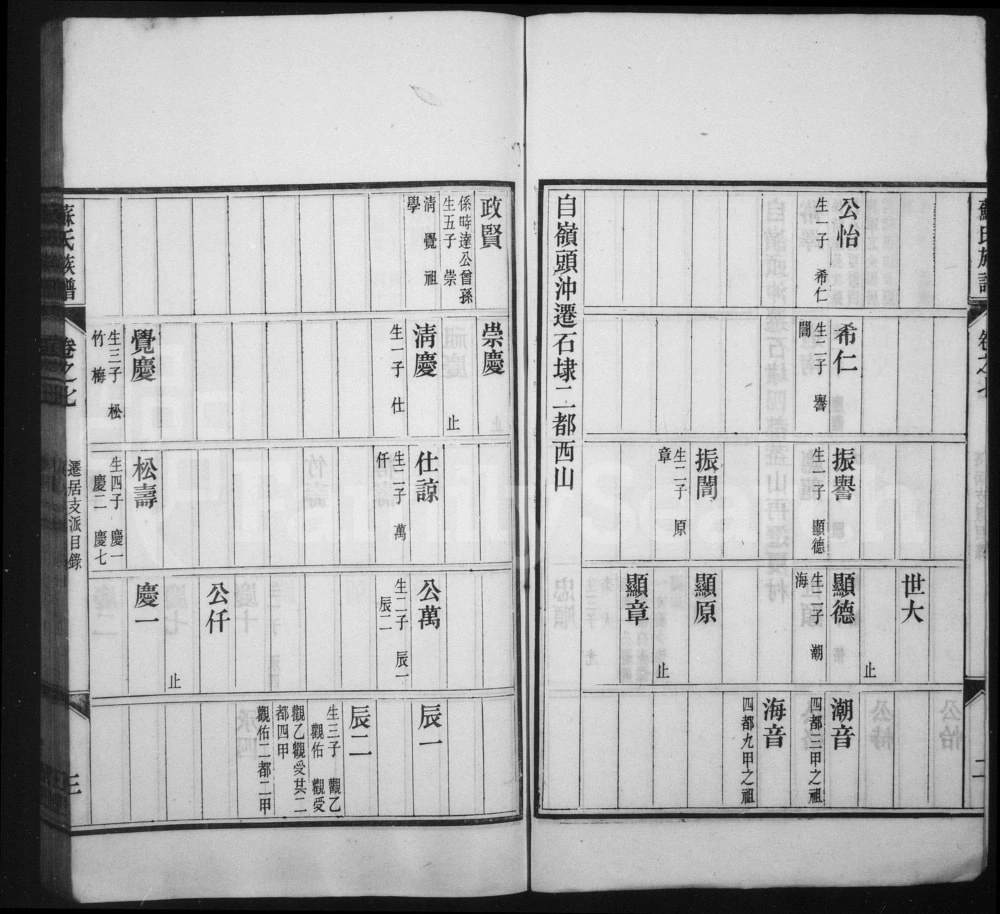 蘇氏族譜
卷之七
二
公怡
生一子 希仁
希仁
生二子 振譽
閶
世大
止
振譽
生一子 顯德
顯德
生二子 潮
海
潮音
四都三甲之祖
海音
四都九甲之祖
振閶
生二子 原
章
顯原
顯章
止
自嶺頭沖遷石埭二都西山
政賢
係時達公曾孫
生五子 崇
清 覺 祖
學
崇慶
止
清慶
生一子 仕
仕諒
生二子 萬
仟
公萬
生二子 辰一
辰二
辰一
辰二
生三子 觀乙
觀佑 觀受
觀乙觀受其二
都四甲
觀佑二都二甲
公仟
止
覺慶
生三子 松
竹 梅
松壽
生四子 慶一
慶二 慶七
慶一
蘇氏族譜
卷之七
遷居支派目錄
三